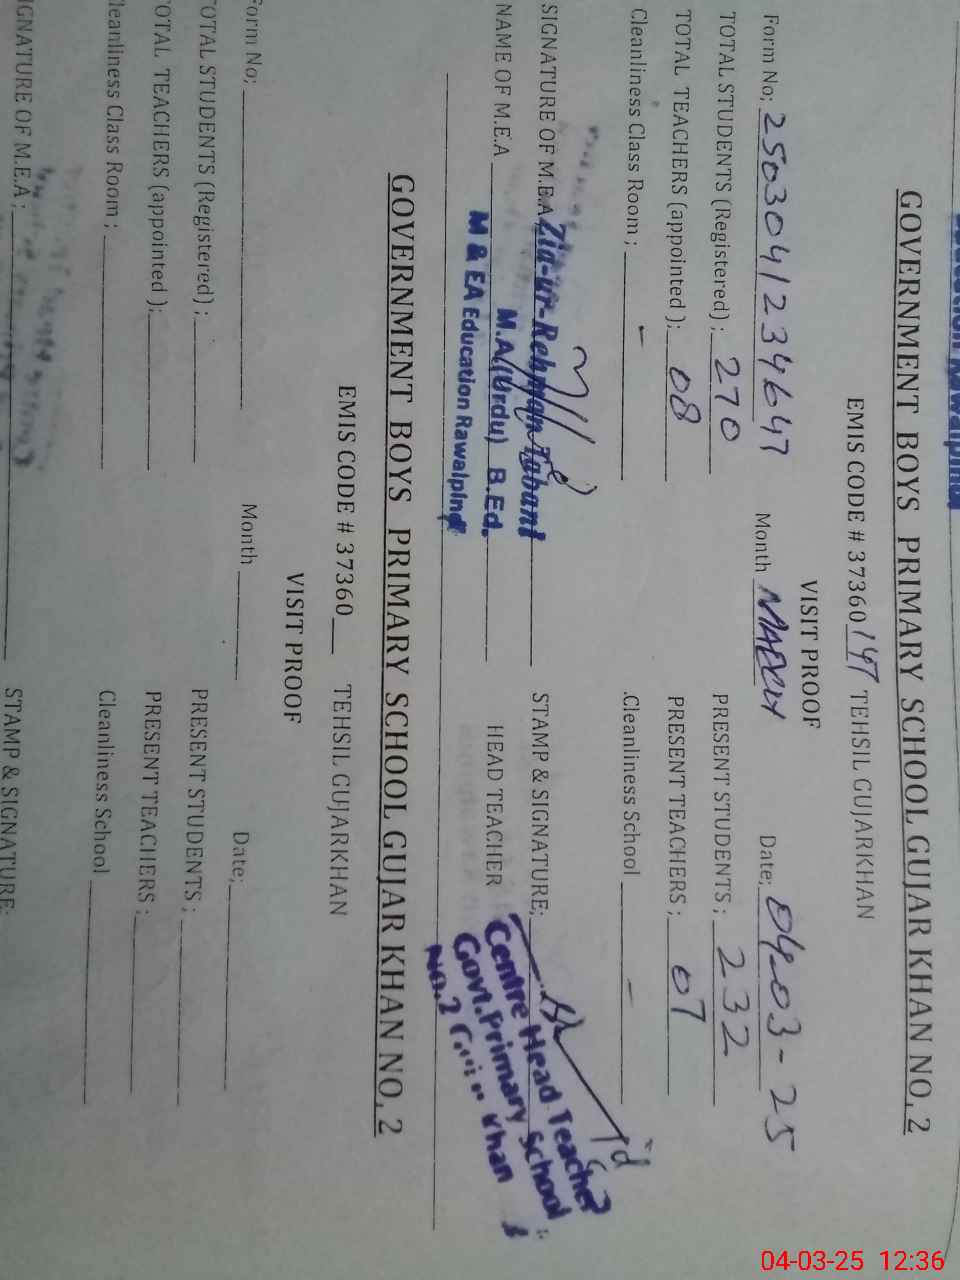 Education Rawalpindi
GOVERNMENT BOYS PRIMARY SCHOOL GUJAR KHAN NO. 2
EMIS CODE # 37360 147 TEHSIL GUJARKHAN
VISIT PROOF
Form No; 2503041234647 Month MARCH Date; 04-03-25
TOTAL STUDENTS (Registered) ; 270 PRESENT STUDENTS ; 232
TOTAL TEACHERS (appointed ); 08 PRESENT TEACHERS ; 07
Cleanliness Class Room ; – Cleanliness School –
SIGNATURE OF M.E.A Zia-ur-Rehman STAMP & SIGNATURE;
NAME OF M.E.A M.A(Urdu) B.Ed. HEAD TEACHER Centre Head Teacher
M & EA Education Rawalpindi Govt. Primary School
No.2 Khan
GOVERNMENT BOYS PRIMARY SCHOOL GUJAR KHAN NO. 2
EMIS CODE # 37360__ TEHSIL GUJARKHAN
VISIT PROOF
Form No; Month Date;
TOTAL STUDENTS (Registered) ; PRESENT STUDENTS ;
TOTAL TEACHERS (appointed ); PRESENT TEACHERS ;
Cleanliness Class Room ; Cleanliness School
SIGNATURE OF M.E.A ; STAMP & SIGNATURE;
04-03-25 12:36